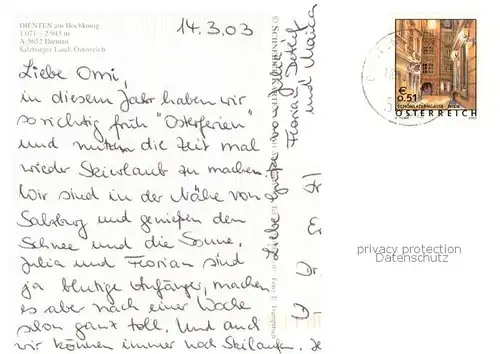 DIENTEN am Hochkönig
1 071 - 2 943 m
A-5652 Dienten
Salzburger Land/Österreich
14.3.03
Liebe Omi,
in diesem Jahr haben wir
so richtig früh "Osterferien"
und nutzen die Zeit mal
wieder Skiurlaub zu machen.
Wir sind in der Nähe von
Salzburg und genießen den
Schnee und die Sonne.
Julia und Florian sind
ja blutige Anfänger, machen
es aber nach einer Woche
schon ganz toll. Und auch
wir können immer noch Skilaufen.
Liebe Grüße von Julia
Florian, Detlef
und Maika
€ 0,51
SCHÖNLATERNGASSE WIEN
ÖSTERREICH
privacy protection
Datenschutz